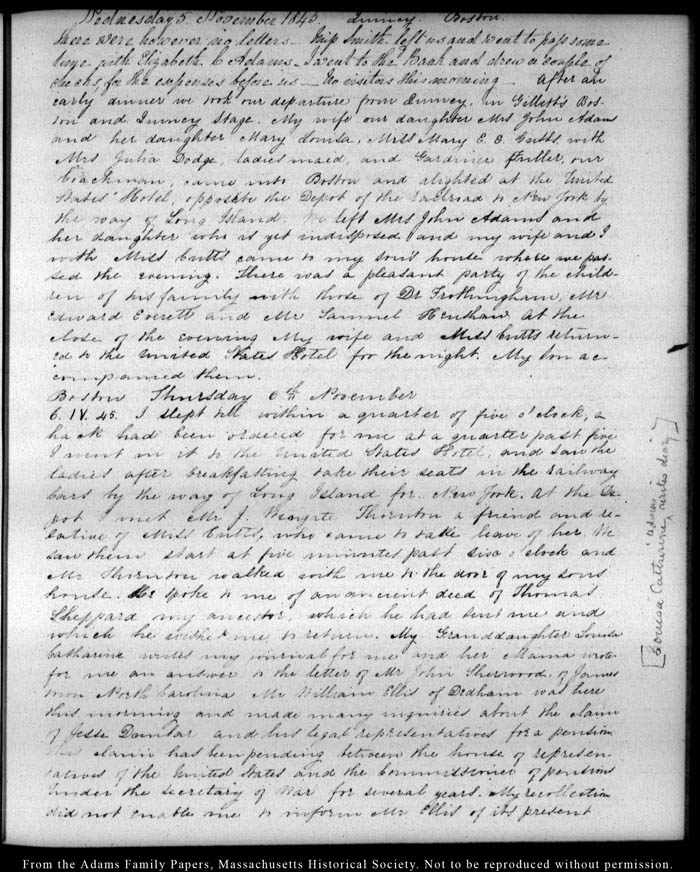 Wednesday 5. November 1845. Quincy. Boston.
there were however no letters — Miss Smith left us and went to pass some
time with Elizabeth C Adams — I went to the Bank and drew a couple of
checks for the expenses before us — No visitors this morning — After an
early dinner we took our departure from Quincy, in Gillett's Bos-
ton and Quincy Stage. My wife our daughter Mrs John Adams
and her daughter Mary Louisa. Miss Mary E. E. Cutts, with
Mrs Julia Dodge, ladies maid, and Gardiner Fuller, our
Coachman, came into Boston and alighted at the United
States' Hotel, opposite the Depot of the railroad to New York by
the way of Long Island. We left Mrs John Adams and
her daughter who is yet indisposed, and my wife and I
with Miss Cutts came to my son's house where we pas-
sed the evening. There was a pleasant party of the child-
ren of his family with those of Dr Frothingham, Mr
Edward Everett and Mr Samuel Henshaw. At the
close of the evening My wife and Miss Cutts return-
ed to the United States Hotel for the night. My son ac-
companied them.
Boston Thursday 6th November
6. IV. 45. I slept till within a quarter of five o'clock, a
hack had been ordered for me at a quarter past five
I went in it to the United States Hotel, and saw the
ladies after breakfasting take their seats in the railway
Cars by the way of Long Island for New York. At the De-
pot I met Mr J. Wingate Thornton a friend and re-
lative of Miss Cutts, who came to take leave of her. We
saw them start at five minutes past six o'clock and
Mr Thornton walked with me to the door of my sons
house. He spoke to me of an ancient deed of Thomas
Sheppard my ancestor, which he had sent me and
which he wished me to return. My Granddaughter Louisa
Catharine writes my journal for me and her Mama wrote
for me an answer to the letter of Mr John Sherwood, of James
town North Carolina Mr William Ellis of Dedham was here
this morning and made many inquiries about the claim
of Jesse Dunbar and his legal representatives for a pension
This claim has been pending between the house of represen-
tatives of the United States and the Commissioner of pensions
under the secretary of War for several years. My recollection
did not enable me to inform Mr Ellis of its present
[Louisa Catharine Adams writes diary]
From the Adams Family Papers, Massachusetts Historical Society. Not to be reproduced without permission.